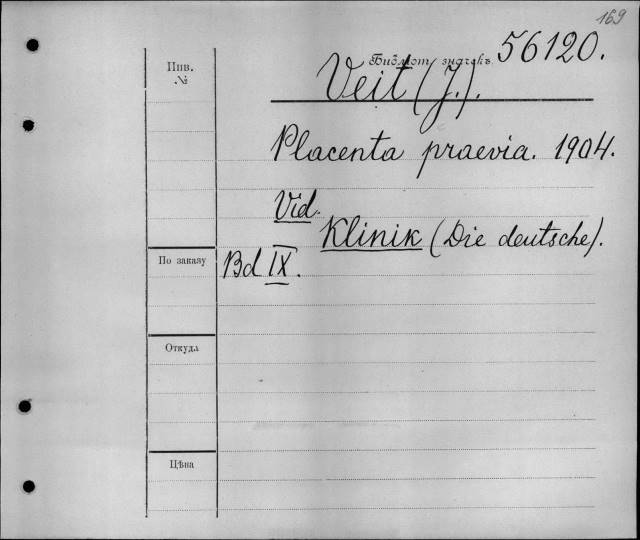 169
Библіот. значекъ 56120.
Инв.
№
Veit (J.).
Placenta praevia. 1904.
Vid.
Klinik (Die deutsche).
По заказу
Bd IX.
Откуда
Цѣна